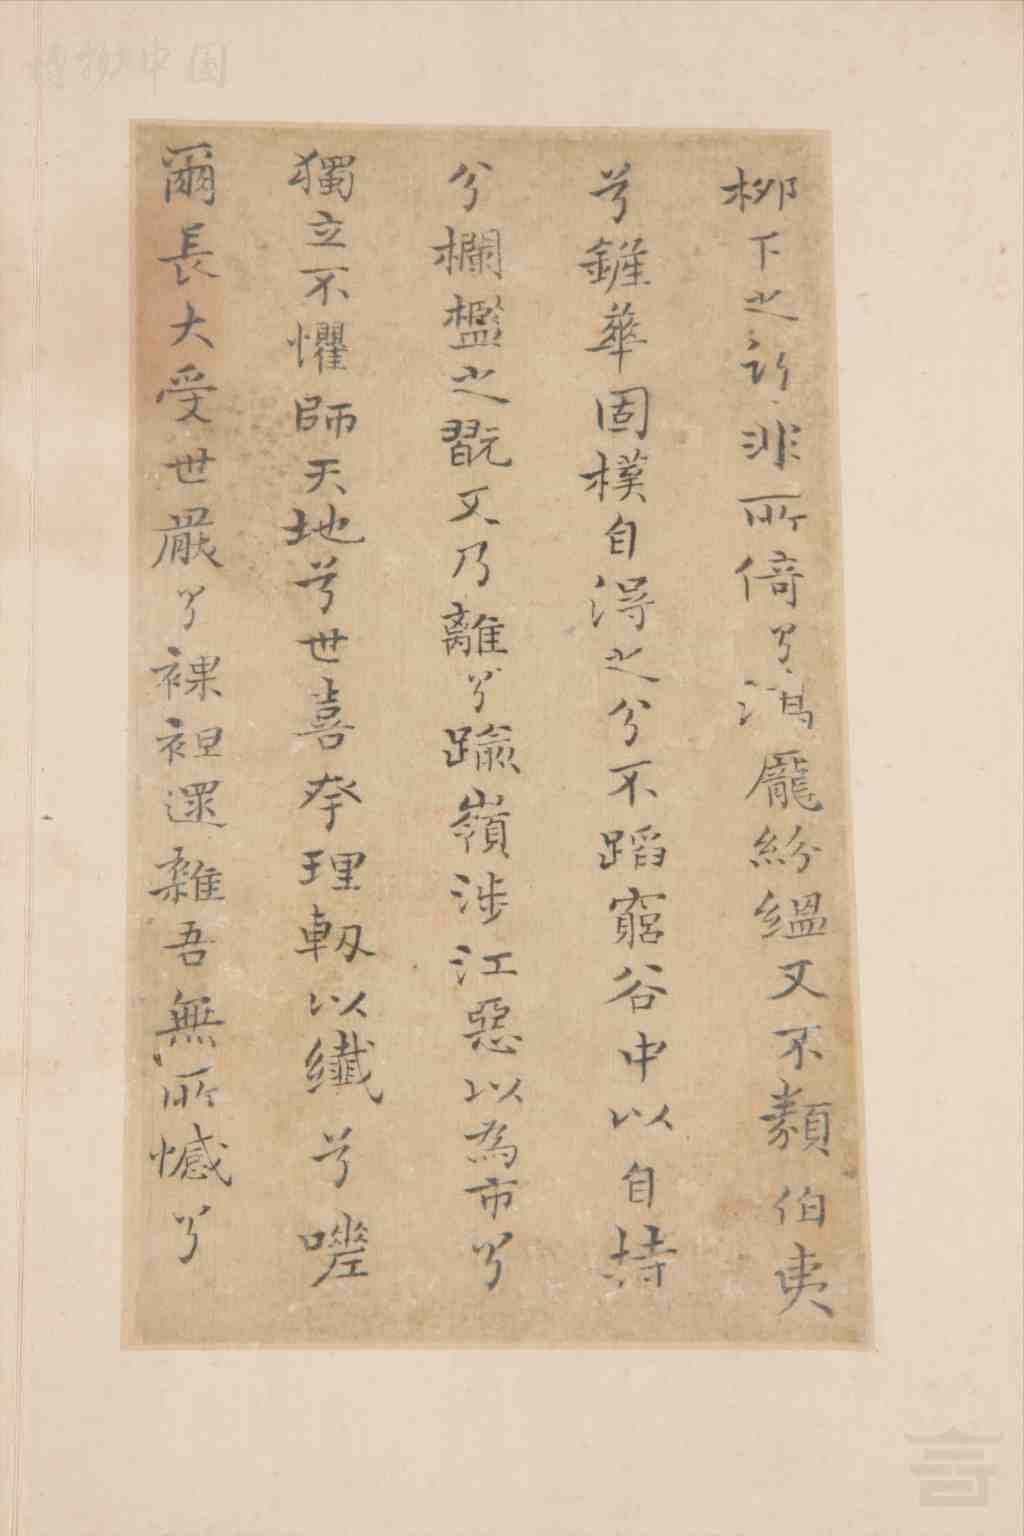 柳下之訢非所倚兮鴻龐紛縕又不類伯夷
兮鏙華固樸自得之兮不蹈窮谷中以自持
兮欄檻之翫又乃離兮踰嶺涉江惡以為市兮
獨立不懼師天地兮世喜癸理軔以纖兮嗟
爾長大受世罷兮裸袒還雜吾無所憾兮
博物中国